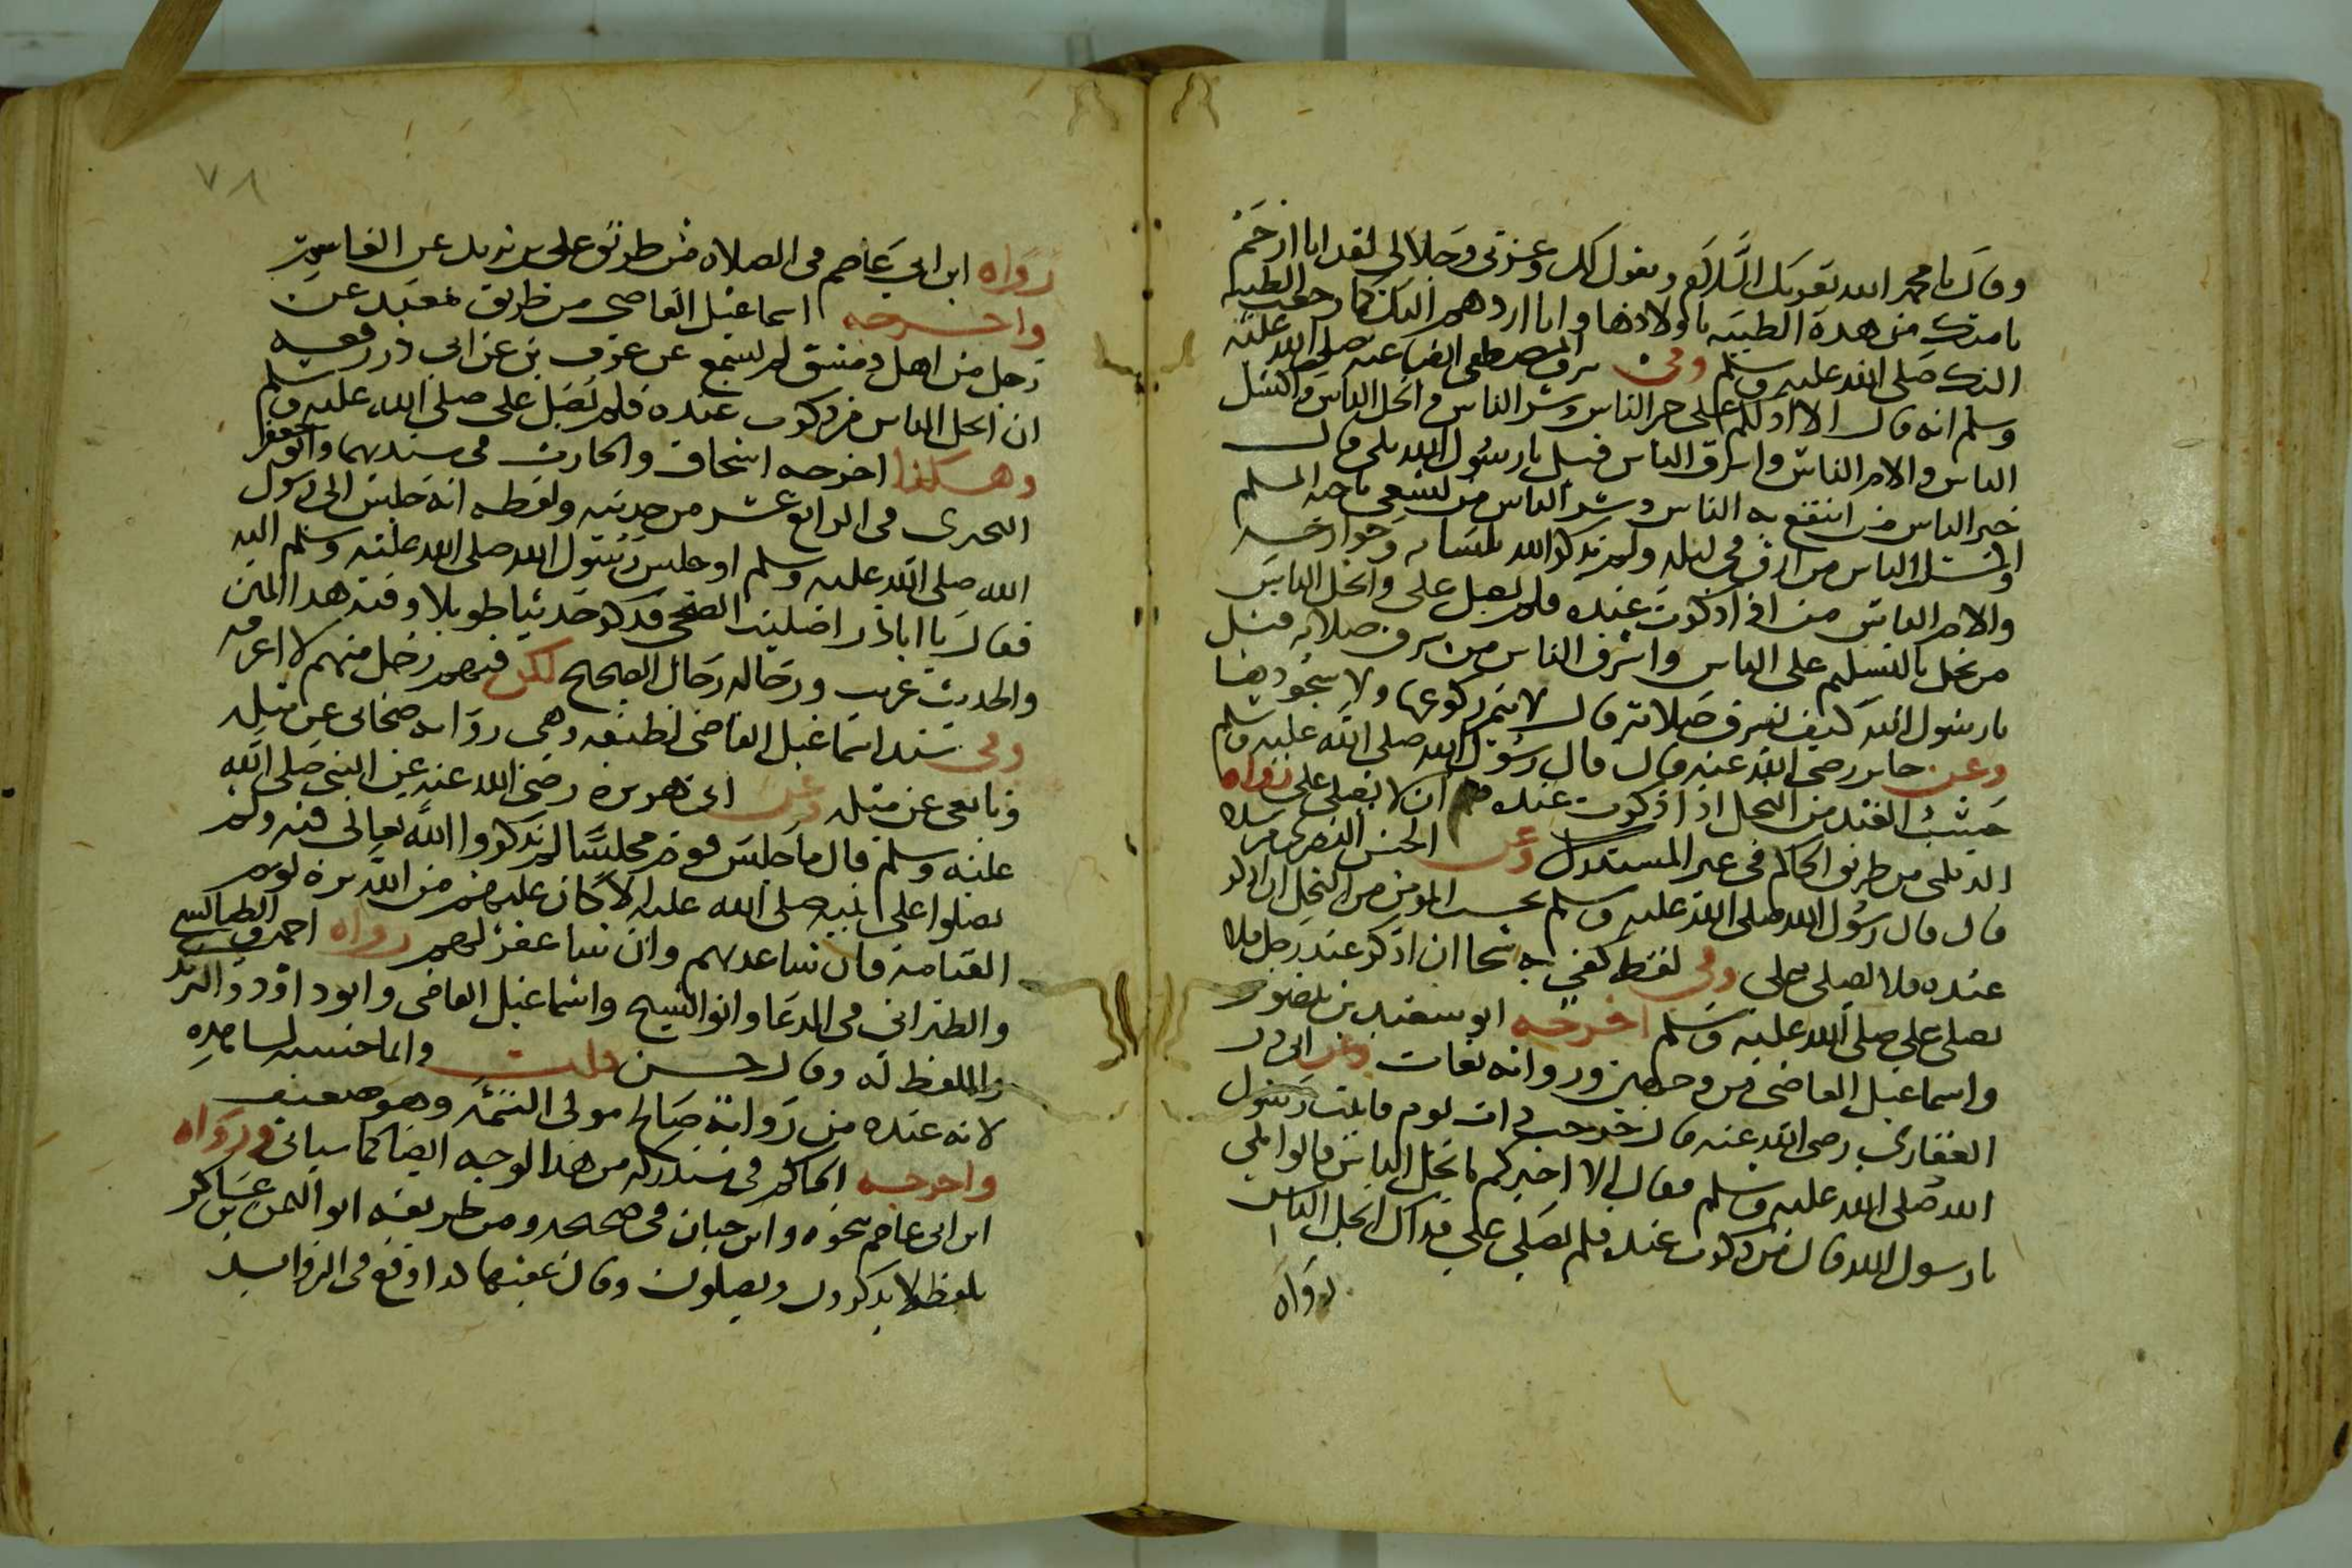 وقال يا محمد الله يقريك السلام ويقول لك وعزتي وجلالي لقد انا ارحم
بامتك من هذه الظبية باولادها وانا اردهم اليك كما رجعت الظبية
اليك صلى الله عليه وسلم وفي شرف المصطفى ايضا عنه صلى الله عليه
وسلم انه قال الا ادلكم على خير الناس وشر الناس وابخل الناس واكسل
الناس والام الناس واسرق الناس قيل يا رسول الله بلى قال
خير الناس من انتفع به الناس وشر الناس من يسعى باخيه المسلم
واكسل الناس من ارق في ليله ولم يذكر الله بلسانه وجوارحه
والام الناس من اذا ذكرت عنده فلم يصل علي وابخل الناس
من بخل بالتسليم على الناس واسرق الناس من سرق صلاته قيل
يا رسول الله كيف يسرق صلاته قال لا يتم ركوعها ولا سجودها
وعن جابر رضي الله عنه قال قال رسول الله صلى الله عليه وسلم
حسب العبد من البخل اذا ذكرت عنده ان لا يصلي علي رواه
الديلمي من طريق الحاكم في غير المستدرك وعن الحسن البصري مرسلا
قال قال رسول الله صلى الله عليه وسلم بحسب المؤمن من البخل ان اذكر
عنده فلا يصلي علي وفي لفظ كفى به شحا ان اذكر عند رجل فلا
يصلي علي صلى الله عليه وسلم اخرجه ابو سعيد بن منصور
واسماعيل القاضي من وجهين ورواته ثقات وعن ابي ذر
الغفاري رضي الله عنه قال خرجت ذات يوم فاتيت رسول
الله صلى الله عليه وسلم فقال الا اخبركم بابخل الناس قالوا بلى
يا رسول الله قال من ذكرت عنده فلم يصلي علي فذاك ابخل الناس
رواه
٧٨
رواه ابن ابي عاصم في الصلاة من طريق علي بن يزيد عن القاسم
واخرجه اسماعيل القاضي من طريق معبد عن
رجل من اهل دمشق لم يسمع عن عوف بن عن ابي ذر رفعه
ان ابخل الناس من ذكرت عنده فلم يصل علي صلى الله عليه وسلم
وهكذا اخرجه اسحاق والحارث في سنديهما وابو جعفر
البحري في الرابع عشر من حديثه ولفظه انه جلس الى رسول
الله صلى الله عليه وسلم او جلس رسول الله صلى الله عليه وسلم اليه
فقال يا ابا ذر اصليت الضحى فذكر حديثا طويلا وفيه هذا المتن
والحديث غريب ورجاله رجال الصحيح لكن فيهم رجل مبهم لا اعرفه
وفي سند اسماعيل القاضي لطيفة وهي رواية صحابي عن مثله
وتابعي عن مثله وعن ابي هريرة رضي الله عنه عن النبي صلى الله
عليه وسلم قال ما جلس قوم مجلسا لم يذكروا الله تعالى فيه ولم
يصلوا على نبيه صلى الله عليه الا كان عليهم من الله ترة يوم
القيامة فان شا عذبهم وان شا غفر لهم رواه احمد والطيالسي
والطبراني في الدعا وابو الشيخ واسماعيل القاضي وابو داود والترمذي
واللفظ له وقال حسن قلت وانما حسنه لشاهده
لانه عنده من رواية صالح مولى التئمة وهو ضعيف
واخرجه الحاكم في مستدركه من هذا الوجه ايضا كما سياتي ورواه
ابن ابي عاصم نحوه وابن حبان في صحيحه ومن طريقه ابو اليمن بن عساكر
بلفظ لا يذكرون ويصلون وقال عقبها كذا وقع في الزوايد